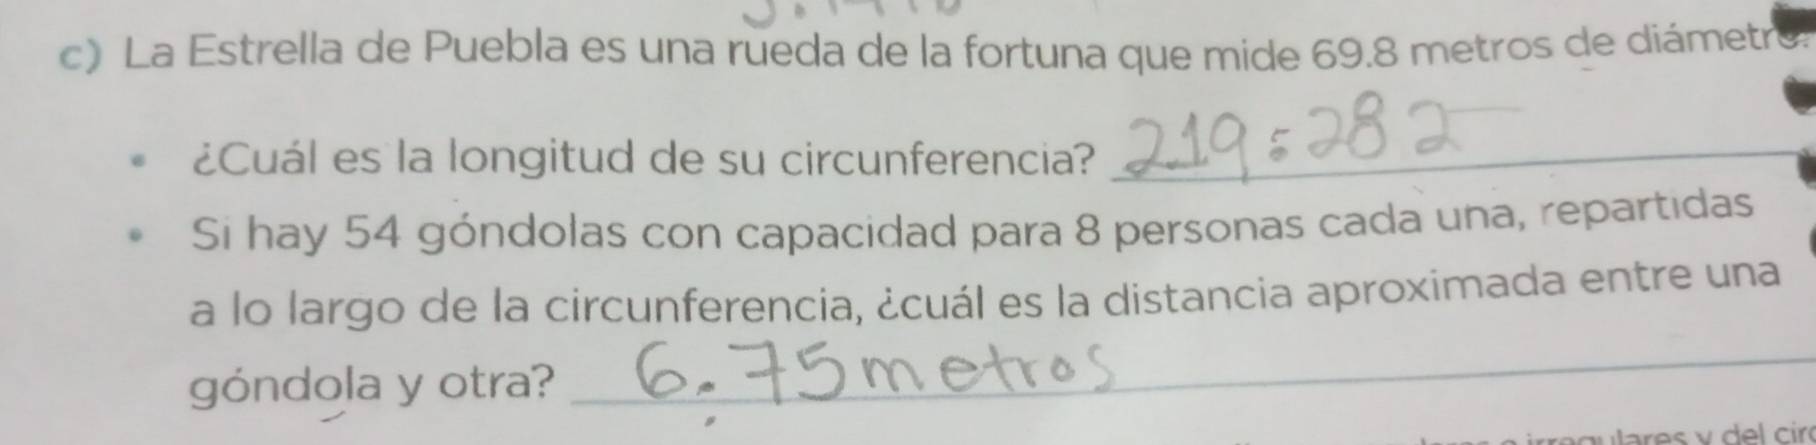 c) La Estrella de Puebla es una rueda de la fortuna que mide 69.8 metros de diámetro.
• ¿Cuál es la longitud de su circunferencia? 219.282
• Si hay 54 góndolas con capacidad para 8 personas cada una, repartidas
a lo largo de la circunferencia, ¿cuál es la distancia aproximada entre una
góndola y otra? 6.75 metros